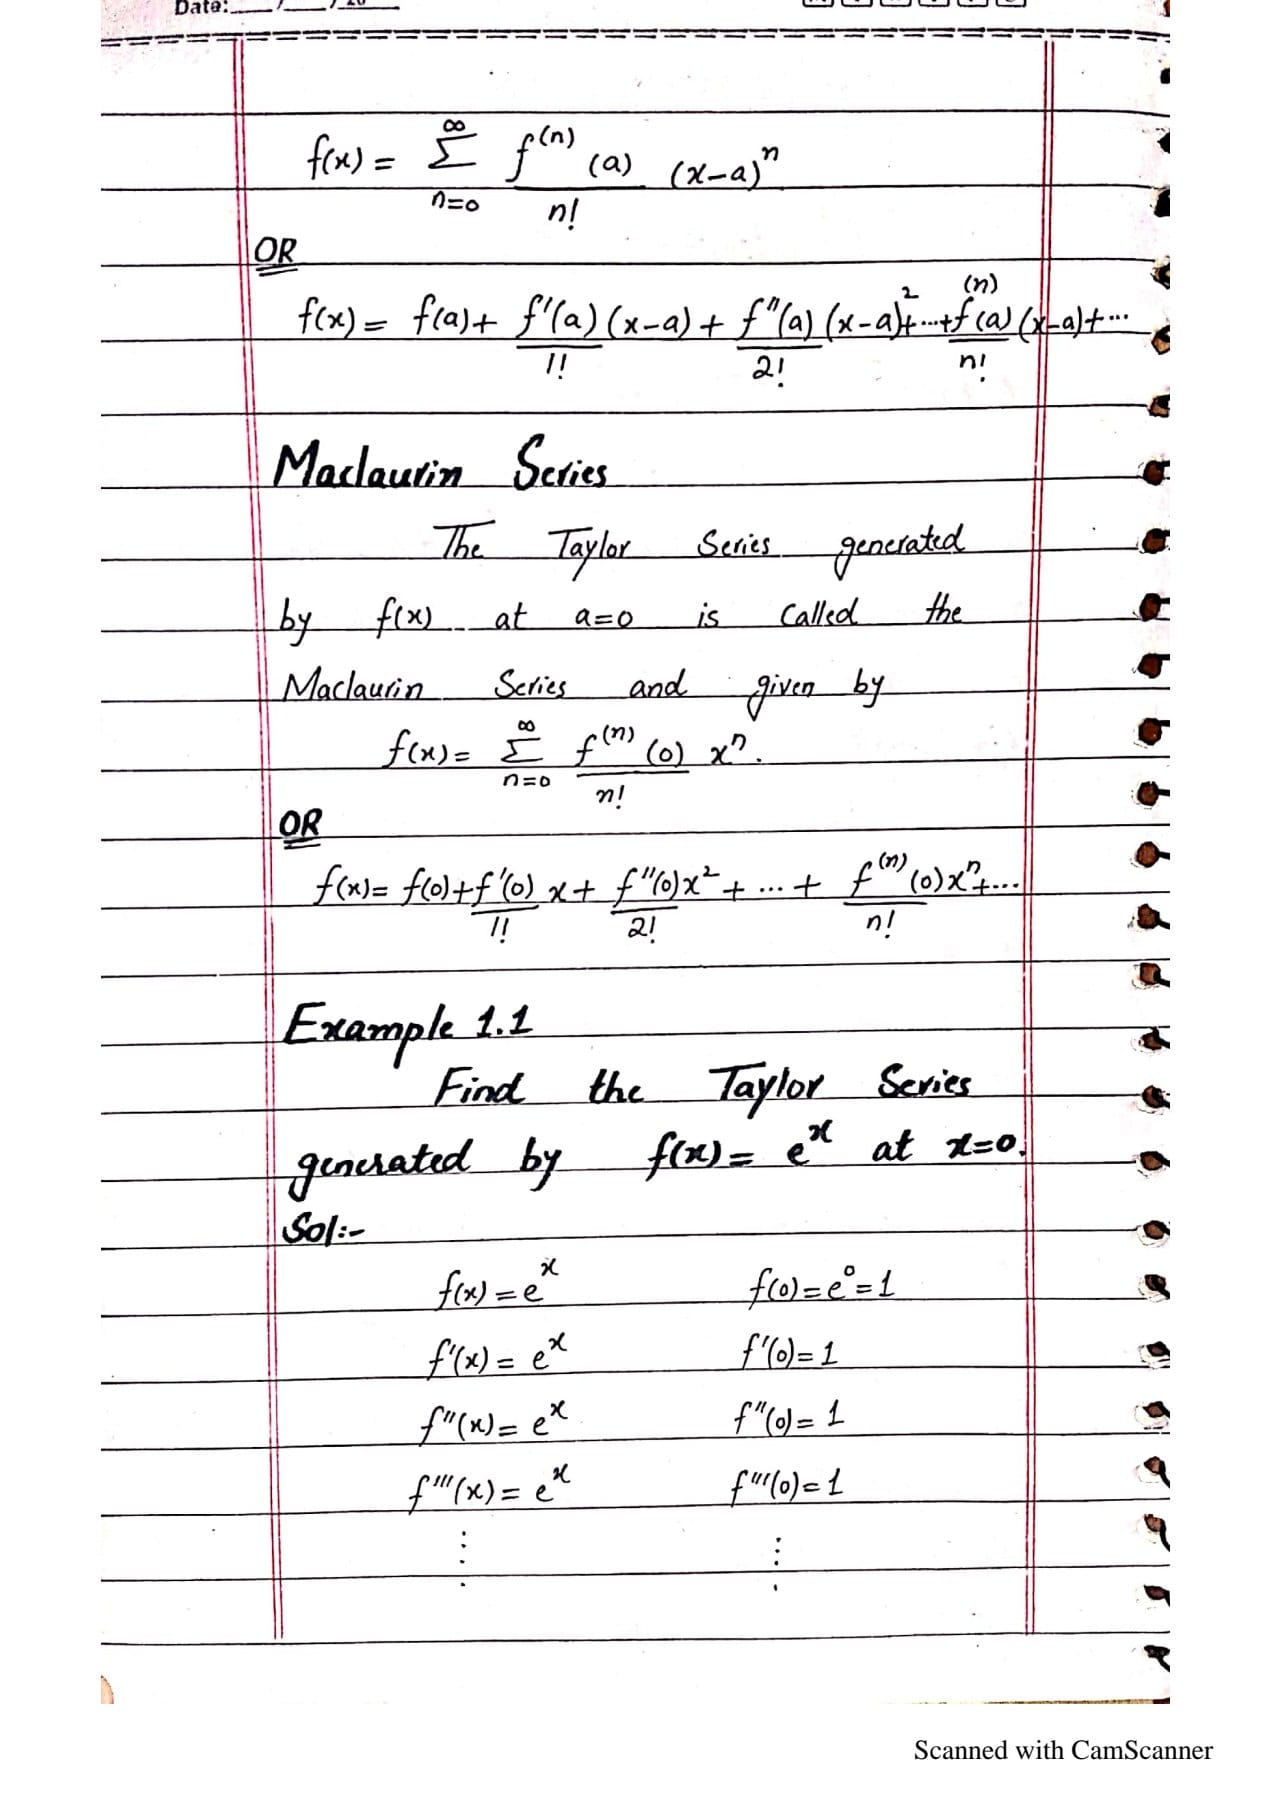 Date: / / 20
f(x) = ∞ Σ n=0 f⁽ⁿ⁾(a) / n! (x-a)ⁿ
OR
f(x) = f(a) + f'(a)/1! (x-a) + f''(a)/2! (x-a)² + ... + f⁽ⁿ⁾(a)/n! (x-a) + ...
Maclaurin Series
The Taylor Series generated
by f(x) at a=0 is called the
Maclaurin Series and given by
f(x) = ∞ Σ n=0 f⁽ⁿ⁾(0) / n! xⁿ.
OR
f(x) = f(0) + f'(0)/1! x + f''(0)/2! x² + ... + f⁽ⁿ⁾(0)/n! xⁿ + ...
Example 1.1
Find the Taylor Series
generated by f(x) = eˣ at x=0.
Sol:-
f(x) = eˣ f(0) = e⁰ = 1
f'(x) = eˣ f'(0) = 1
f''(x) = eˣ f''(0) = 1
f'''(x) = eˣ f'''(0) = 1
⋮ ⋮
Scanned with CamScanner